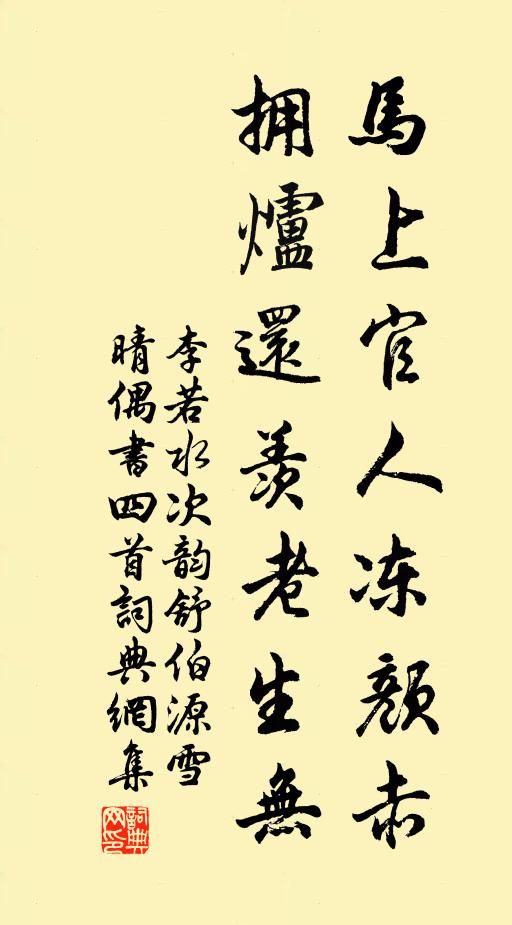 馬上官人冻顏赤
拥爐還羨老生無
李若水次韵舒伯源雪
晴偶書四首詞典網集
詞典
网印